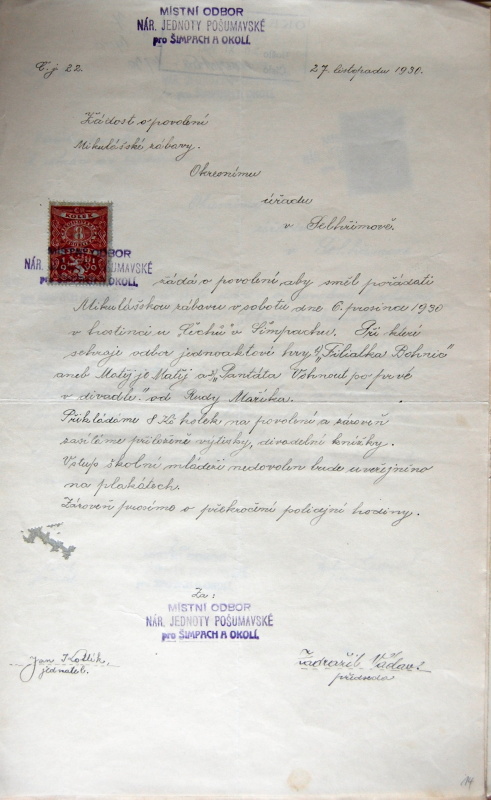 MÍSTNÍ ODBOR
NÁR. JEDNOTY POŠUMAVSKÉ
pro ŠIMPACH A OKOLÍ.
Č. j. 22.
27. listopadu 1930.
Žádost o povolení
Mikulášské zábavy.
Okresnímu
úřadu
v Pelhřimově.
KOLEK
8
MÍSTNÍ ODBOR
NÁR. JEDNOTY POŠUMAVSKÉ
pro ŠIMPACH A OKOLÍ.
žádá o povolení, aby směl pořádati
Mikulášskou zábavu v sobotu dne 6. prosince 1930
v hostinci u „Čechů" v Šimpachu. Při které
sehraje odbor jednoaktové hry 1) „Filiálka Bohnic"
aneb Matěj je Matěj a 2) „Pantáta Vohnout po prvé
v divadle." od Rudy Maříka.
Přikládáme 8 Kč kolek na povolení a zároveň
zasíláme přiložené výtisky, divadelní knížky.
Vstup školní mládeži nedovolen bude uveřejněno
na plakátech.
Zároveň prosíme o překročení policejní hodiny.
Za:
MÍSTNÍ ODBOR
NÁR. JEDNOTY POŠUMAVSKÉ
pro ŠIMPACH A OKOLÍ.
Jan Kotlík
jednatel.
Zadražil Václav
předseda